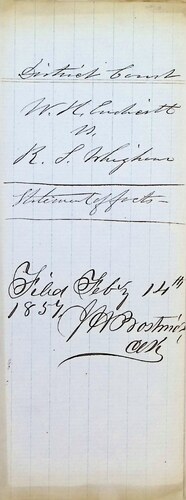 District Court
W. H. Endicott
vs.
R. S. Whigham
Statement of facts —
Filed Feby 14th
1857
Clk